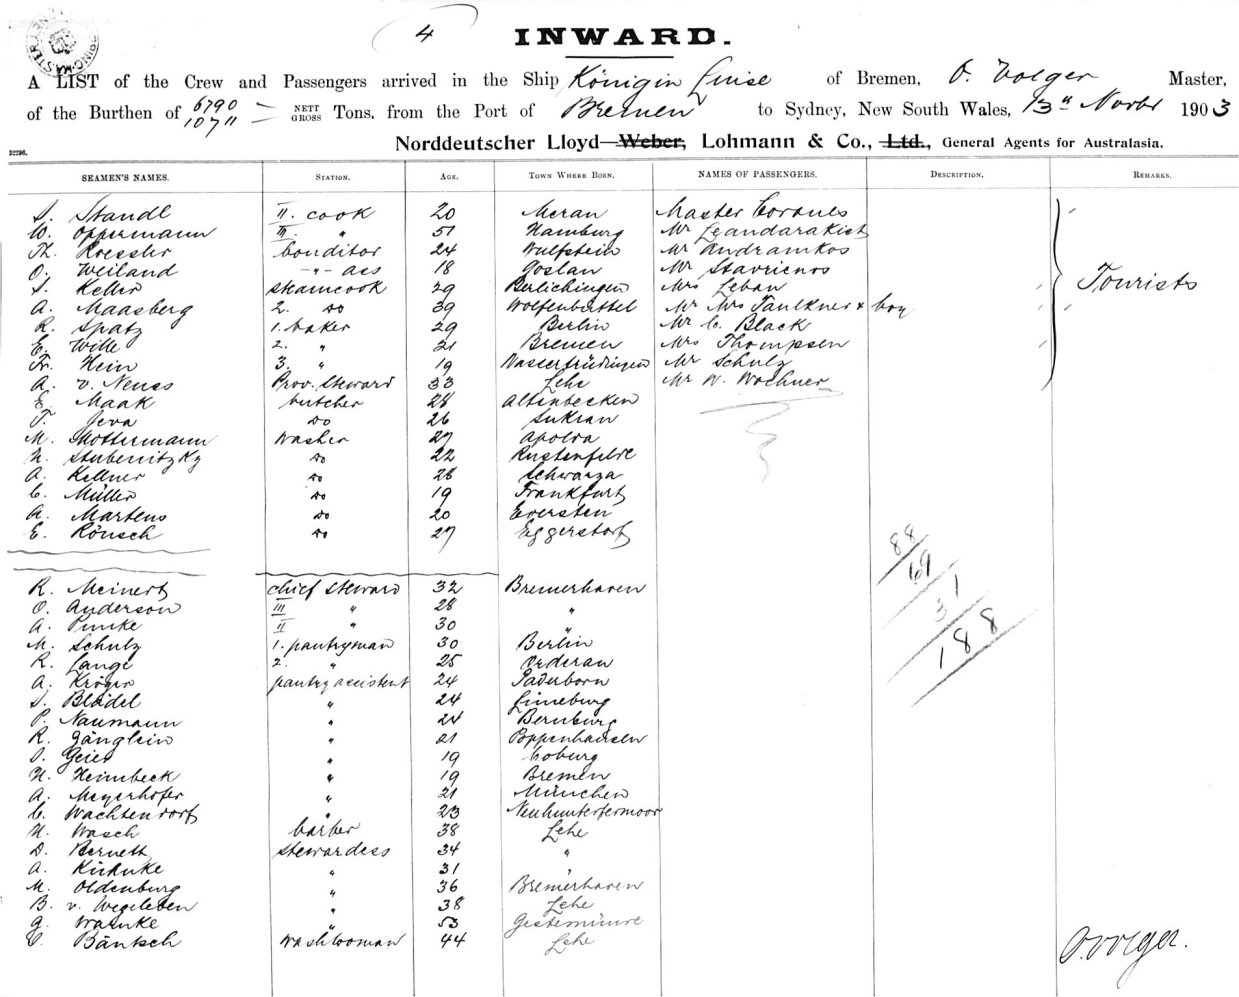 4
INWARD.
A LIST of the Crew and Passengers arrived in the Ship Königin Luise of Bremen, O. Volger Master,
of the Burthen of 6790 10711 NETT GROSS Tons, from the Port of Bremen to Sydney, New South Wales, 13th Novbr 1903
Norddeutscher Lloyd—Weber, Lohmann & Co., Ltd., General Agents for Australasia.
52296.
SEAMEN'S NAMES. STATION. AGE. TOWN WHERE BORN. NAMES OF PASSENGERS. DESCRIPTION. REMARKS.
Standl II. cook 20 Meran Master Corones
W. Oppermann III. " 51 Hamburg Mr Leandarakist
Th. Roessler Conditor 24 Wulfstein Mr Andramkos
O. Weiland -"- aes 18 Goslan Mr Stavrienos
Keller steamcook 29 Berlichingen Mrs Leban Tourists
A. Maasberg 2. do 39 Wolfenbüttel Mr Mrs Faulkner & boy
R. Spatz 1. baker 29 Berlin Mr C. Black
E. Wille 2. " 21 Bremen Mrs Thompsen
Fr. Hein 3. " 19 Wassertrüdingen Mr Schulz
A. v. Neuss Prov. Steward 33 Lehe Mr W. Wochner
E. Maak butcher 28 Altenbecken
F. Jeva do 26 Sukran
M. Mottermann Washer 27 Apolda
H. Stubenitzky do 22 Rustenfelde
A. Kellner do 28 Schwarza
C. Müller do 19 Frankfurt
A. Martens do 20 Eversten
E. Rönsch do 27 Eggerstorf
88
69
31
188
R. Meinert chief steward 32 Bremerhaven
O. Anderson III " 28 "
A. Pumke II " 30 "
M. Schulz 1. pantryman 30 Berlin
R. Lange 2. " 25 Orderan
A. Kröger pantry assistent 24 Paderborn
Blödel " 24 Lüneburg
P. Naumann " 24 Bernburg
R. Gänglein " 21 Poppenhausen
Geier " 19 Coburg
H. Heimbeck " 19 Bremen
A. Meyerhöfer " 21 München
C. Wachtendorf " 23 Neuhuntorfermoor
H. Wasch barber 38 Lehe
D. Bernett stewardess 34 "
A. Kühnke " 31 "
M. Oldenburg " 36 Bremerhaven
B. v. Wegeleben " 38 Lehe
G. Warnke " 53 Gestemünde
Bäntsch washwoman 44 Lehe
O. Volger.